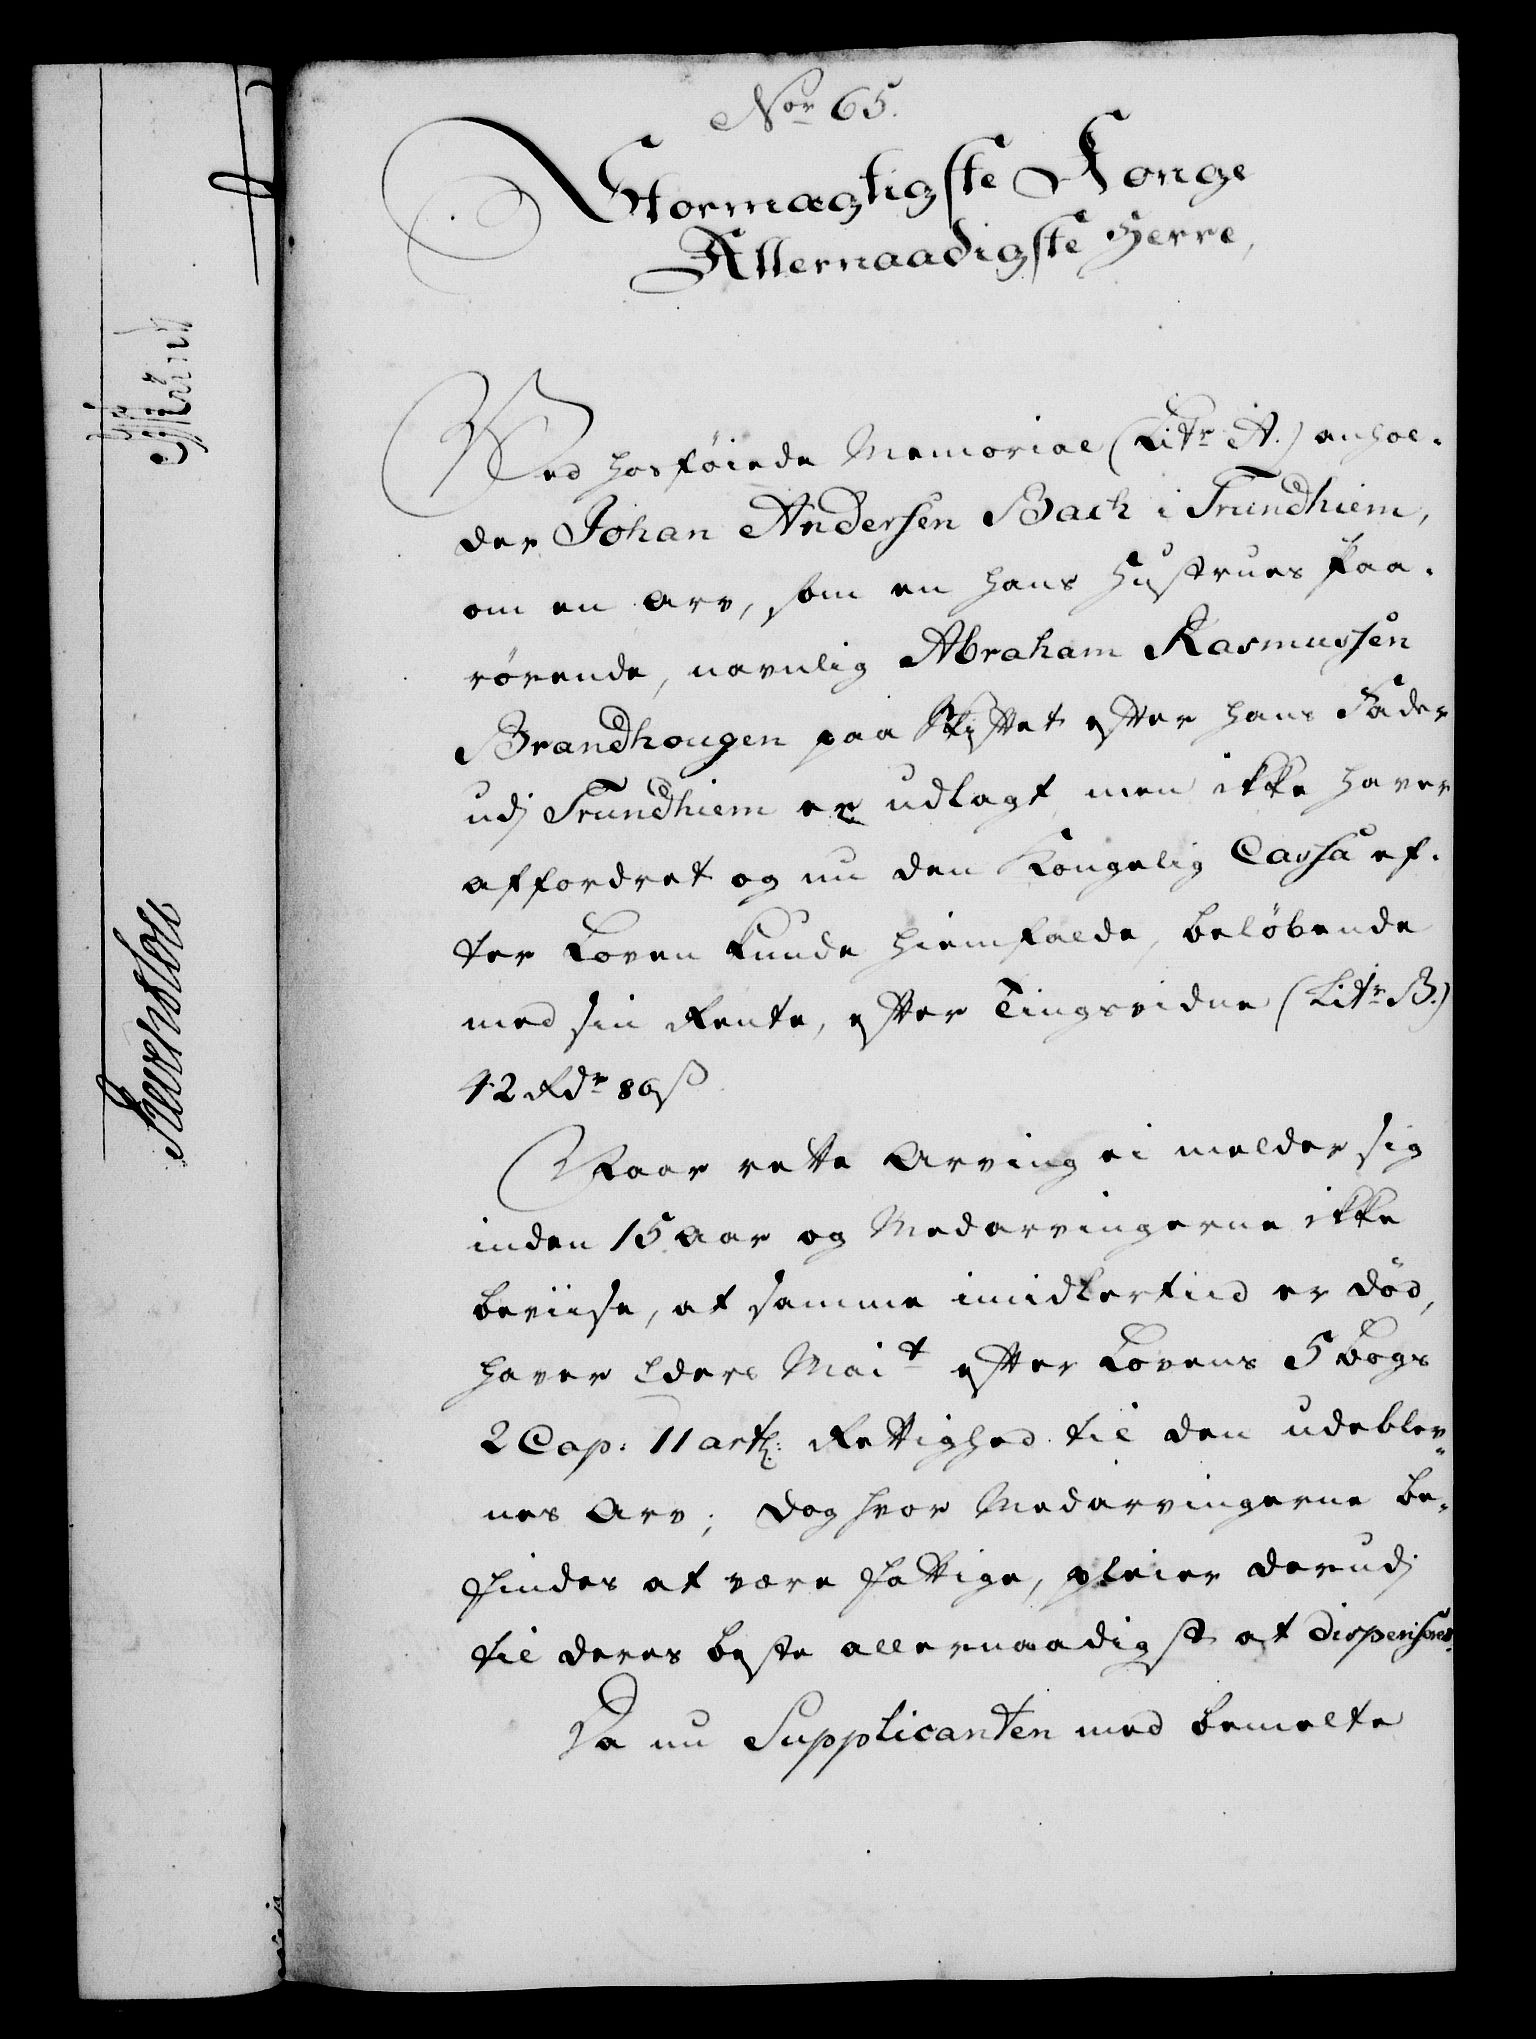 Nor 65.
Stormægtigste Konge
Allernaadigste Herre,
Ved hosføiede Memorial (Litr A.) anhol-
der Johan Andersen Bach i Trundhiem,
om en Arv, som en hans Hustrues Paa-
rørende, navnlig Abraham Rasmussen
Brandhougen paa Skiftet efter hans Fader
udj Trundhiem er udlagt men ikke haver
affordret og nu den Kongelig Cassa ef-
ter Loven kunde hiemfalde, beløbende
med sin Rente, efter Tingsvidne (Litr B.)
42 Rdr 86 ß
Naar rette Arving ei melder sig
inden 15 Aar og Medarvingerne ikke
beviise, at samme imidlertiid er død,
haver Eders Mait efter Lovens 5 Bogs
2 Cap: 11 art: Rettighed til den udeblev-
nes Arv; dog hvor Medarvingerne be-
findes at være fattige, pleier derudj
til deres beste allernaadigst at dispenseres.
Da nu Supplicanten med bemelte